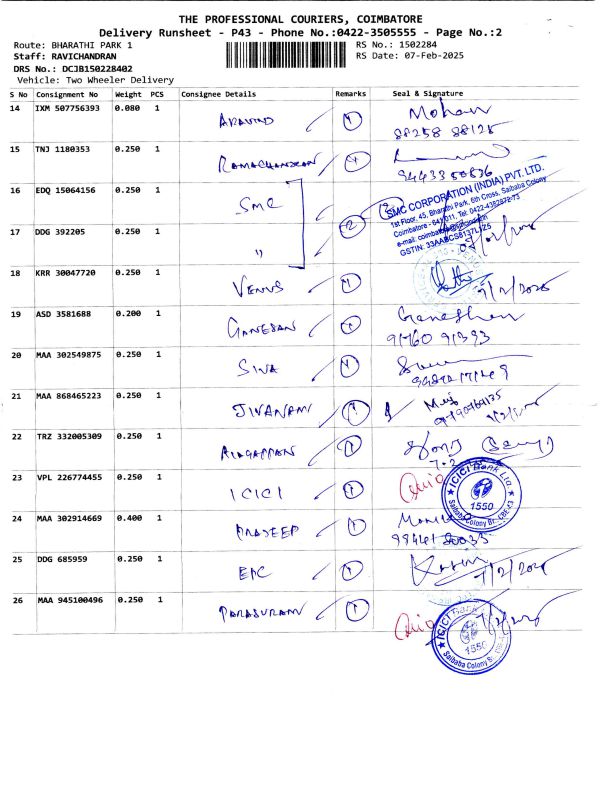 THE PROFESSIONAL COURIERS, COIMBATORE
Delivery Runsheet - P43 - Phone No.:0422-3505555 - Page No.:2
Route: BHARATHI PARK 1
RS No.: 1502284
Staff: RAVICHANDRAN
RS Date: 07-Feb-2025
DRS No.: DCJB150228402
Vehicle: Two Wheeler Delivery
S No Consignment No Weight PCS Consignee Details Remarks Seal & Signature
14 IXM 507756393 0.080 1 ARAVIND 1 Mohan
88258 88125
15 TNJ 1180353 0.250 1 RAMACHANDRAN 1
9443350836
16 EDQ 15064156 0.250 1 SMC 2
SMC CORPORATION (INDIA) PVT. LTD.
1st Floor, 45, Bharathi Park, 6th Cross, Saibaba Colony
Coimbatore - 641011. Tel: 0422-4382872-73
17 DDG 392205 0.250 1 "
18 KRR 30047720 0.250 1 VENUS 1
7/2/2025
19 ASD 3581688 0.200 1 GANESAN 1 Ganeshan
91760 91393
20 MAA 302549875 0.250 1 SIVA 1
21 MAA 868465223 0.250 1 JIVANAM 1
22 TRZ 332005309 0.250 1 ALAGAPPAN 1
23 VPL 226774455 0.250 1 ICICI 1
ICICI Bank Ltd.
1550
Saibaba Colony Br.
24 MAA 302914669 0.400 1 PRADEEP 1
25 DDG 685959 0.250 1 EPC 1
7/2/2025
26 MAA 945100496 0.250 1 PARASURAM 1
7/2/2025
ICICI Bank
1550
Saibaba Colony Br.